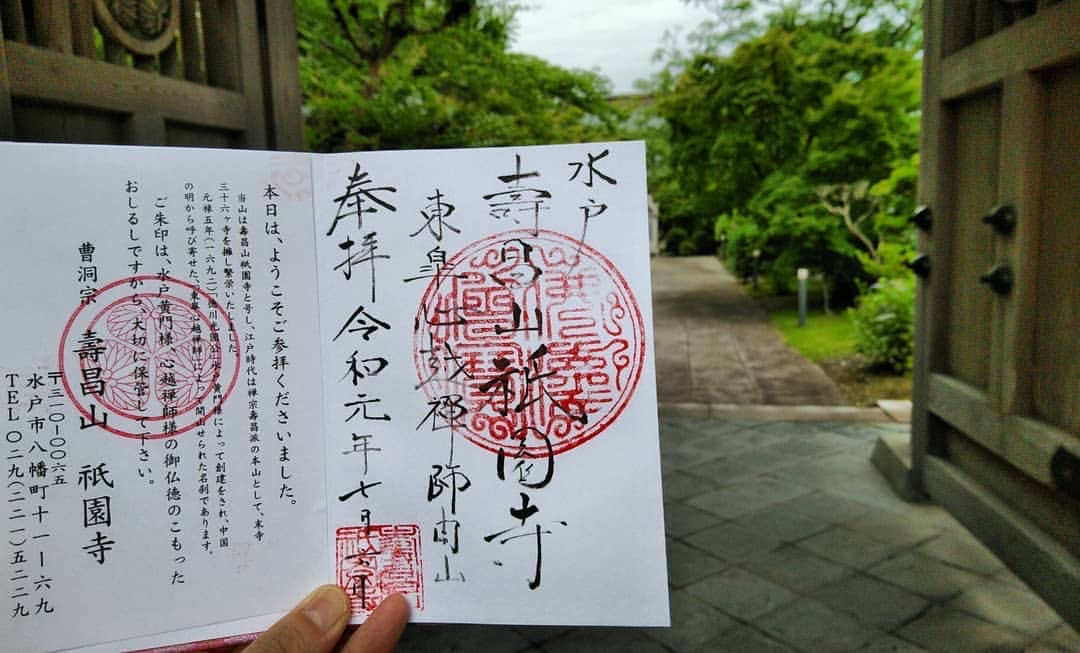 水戸
壽昌山祇園寺
東皐心越禅師由山
奉拝 令和元年七月
本日は、ようこそご参拝くださいました。
当山は壽昌山祇園寺と号し、江戸時代は禅宗壽昌派の本山として、末寺
三十六ヶ寺を擁し繁栄いたしました。
元禄五年(一六九二)徳川光圀公(水戸黄門様)によって創建をされ、中国
の明から呼び寄せた、東皐心越禅師によって開山せられた名刹であります。
ご朱印は、水戸黄門様、心越禅師様の御仏徳のこもった
おしるしですから、大切に保管して下さい。
曹洞宗 壽昌山 祇園寺
〒三一〇-〇〇六五
水戸市八幡町十一ー六九
TEL〇二九(二二一)五二二九